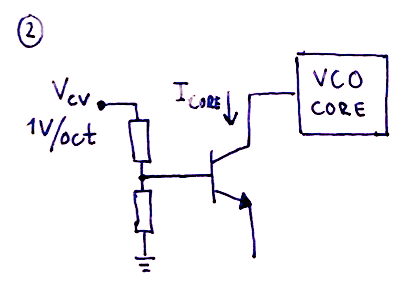 2
VCV
1V/oct
ICORE
VCO
CORE